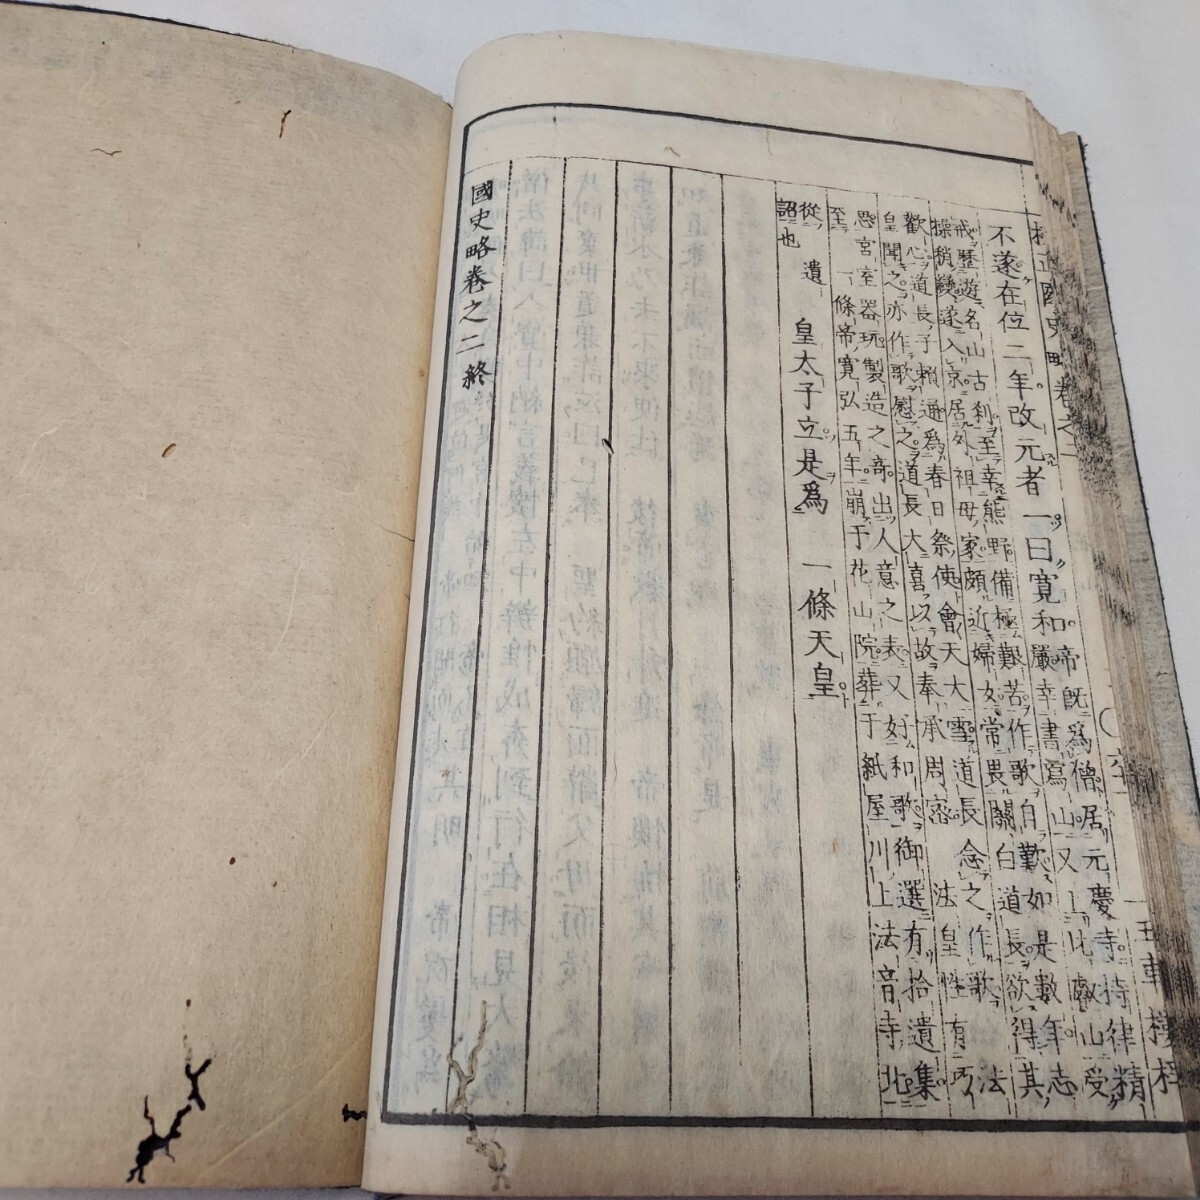 校正國史略卷之二 五車樓梓
不遂在位二年改元者一曰寬和
帝既爲僧居元慶寺持律精
嚴幸書寫山又上比叡山受
戒歷遊名山古刹至幸熊野備極艱苦作歌自歎如是數年志
操稍變遂入京居外祖母家頗近婦女常畏關白道長欲得其
歡心道長子賴通爲春日祭使會天大雪道長念之作歌 法
皇聞之亦作歌慰之道長大喜以故奉承周密 法皇性有巧
思宮室器玩製造之奇出人意之表又好和歌御選有拾遺集
至 一條帝寬弘五年崩于花山院葬于紙屋川上法音寺北
從 遺
詔也
皇太子立是爲 一條天皇
國史略卷之二終